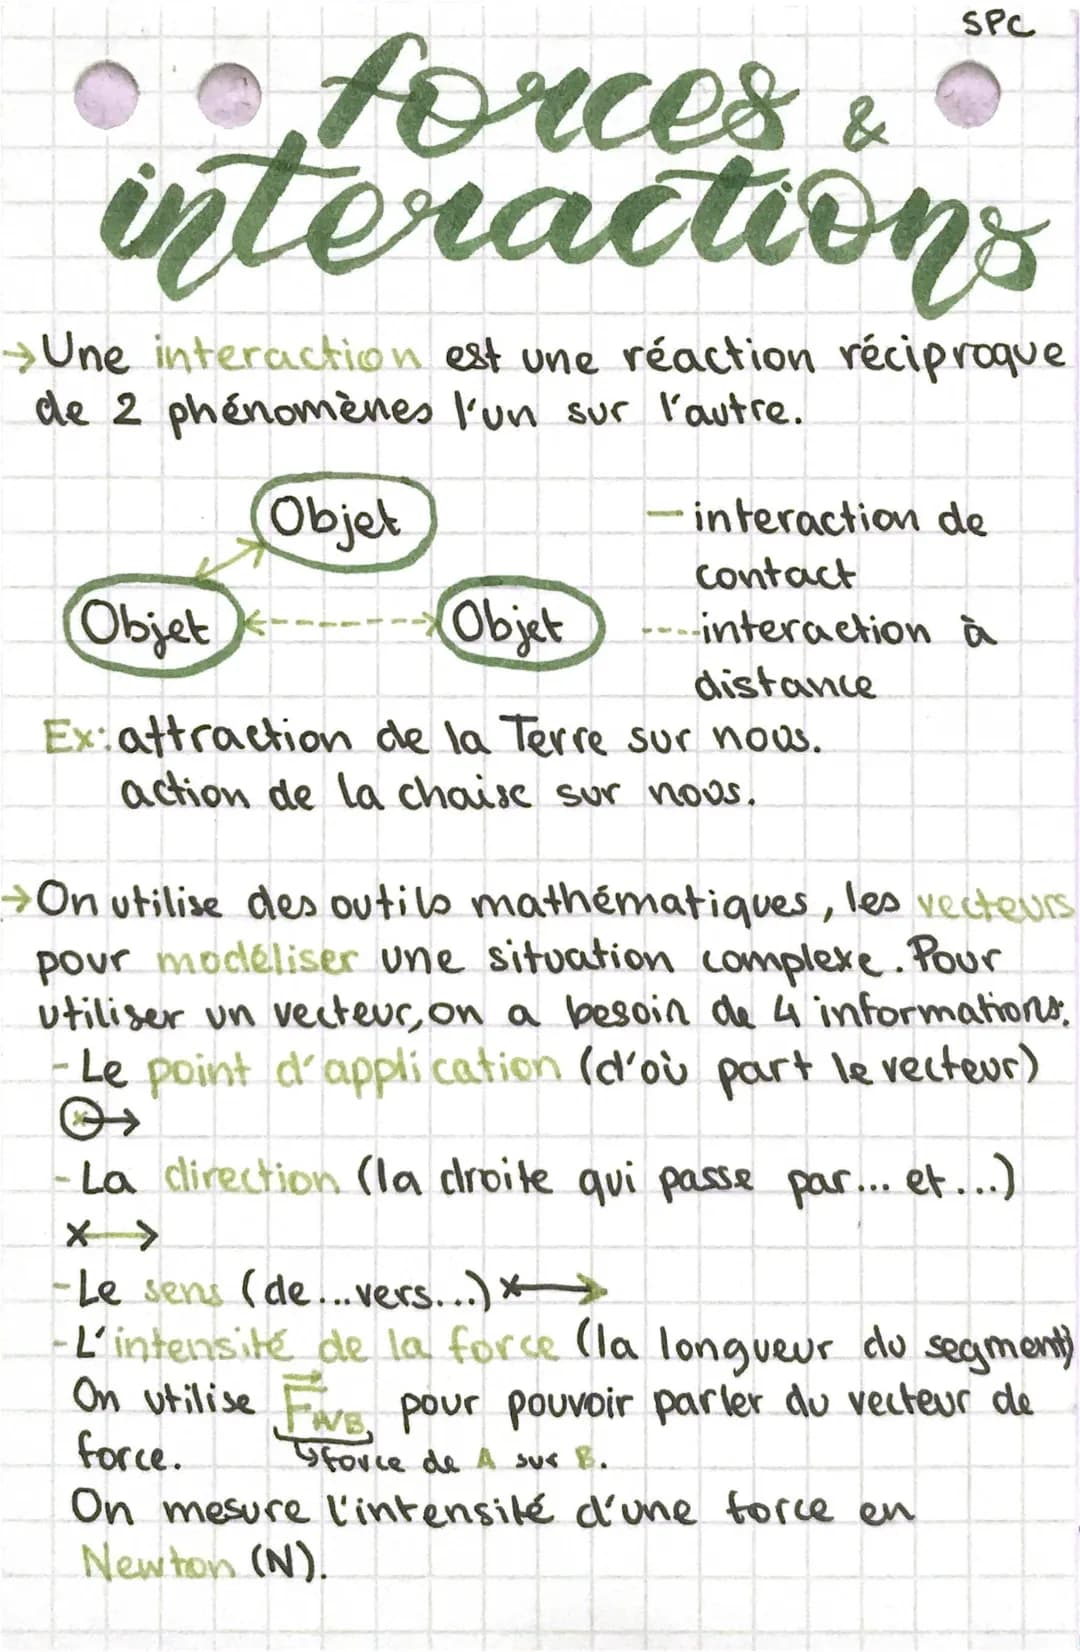 SPC
forces &
interactions
→ Une interaction est une réaction réciproque
de 2 phénomènes l'un sur l'autre.
Objet
Objet
Objet
— interaction de
contact
---- interaction à
distance
Ex: attraction de la Terre sur nous.
action de la chaise sur nous.
→ On utilise des outils mathématiques, les vecteurs
pour modéliser une situation complexe. Pour
utiliser un vecteur, on a besoin de 4 informations:
- Le point d'application (d'où part le vecteur)
- La direction (la droite qui passe par... et...)
- Le sens (de...vers...)
- L'intensité de la force (la longueur du segment)
On utilise F A/B pour pouvoir parler du vecteur de
force.
↳ force de A sur B.
On mesure l'intensité d'une force en
Newton (N).